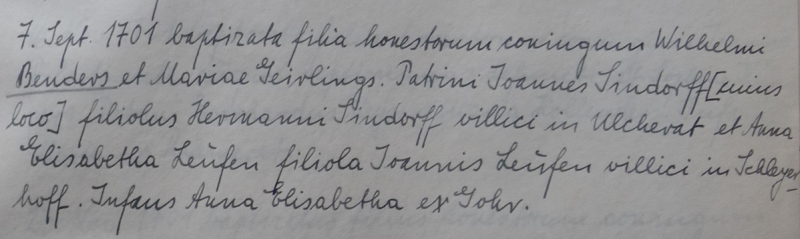 7. Sept. 1701 baptizata filia honestorum coniugum Wilhelmi
Benders et Mariae Geirlings. Patrini Joannes Sindorff [cuius
loco] filiolus Hermanni Sindorff villici in Ulcherat et Anna
Elisabetha Leùfen filiola Joannis Leùfen villici in Schleyer-
hoff. Infans Anna Elisabetha ex Gohr.